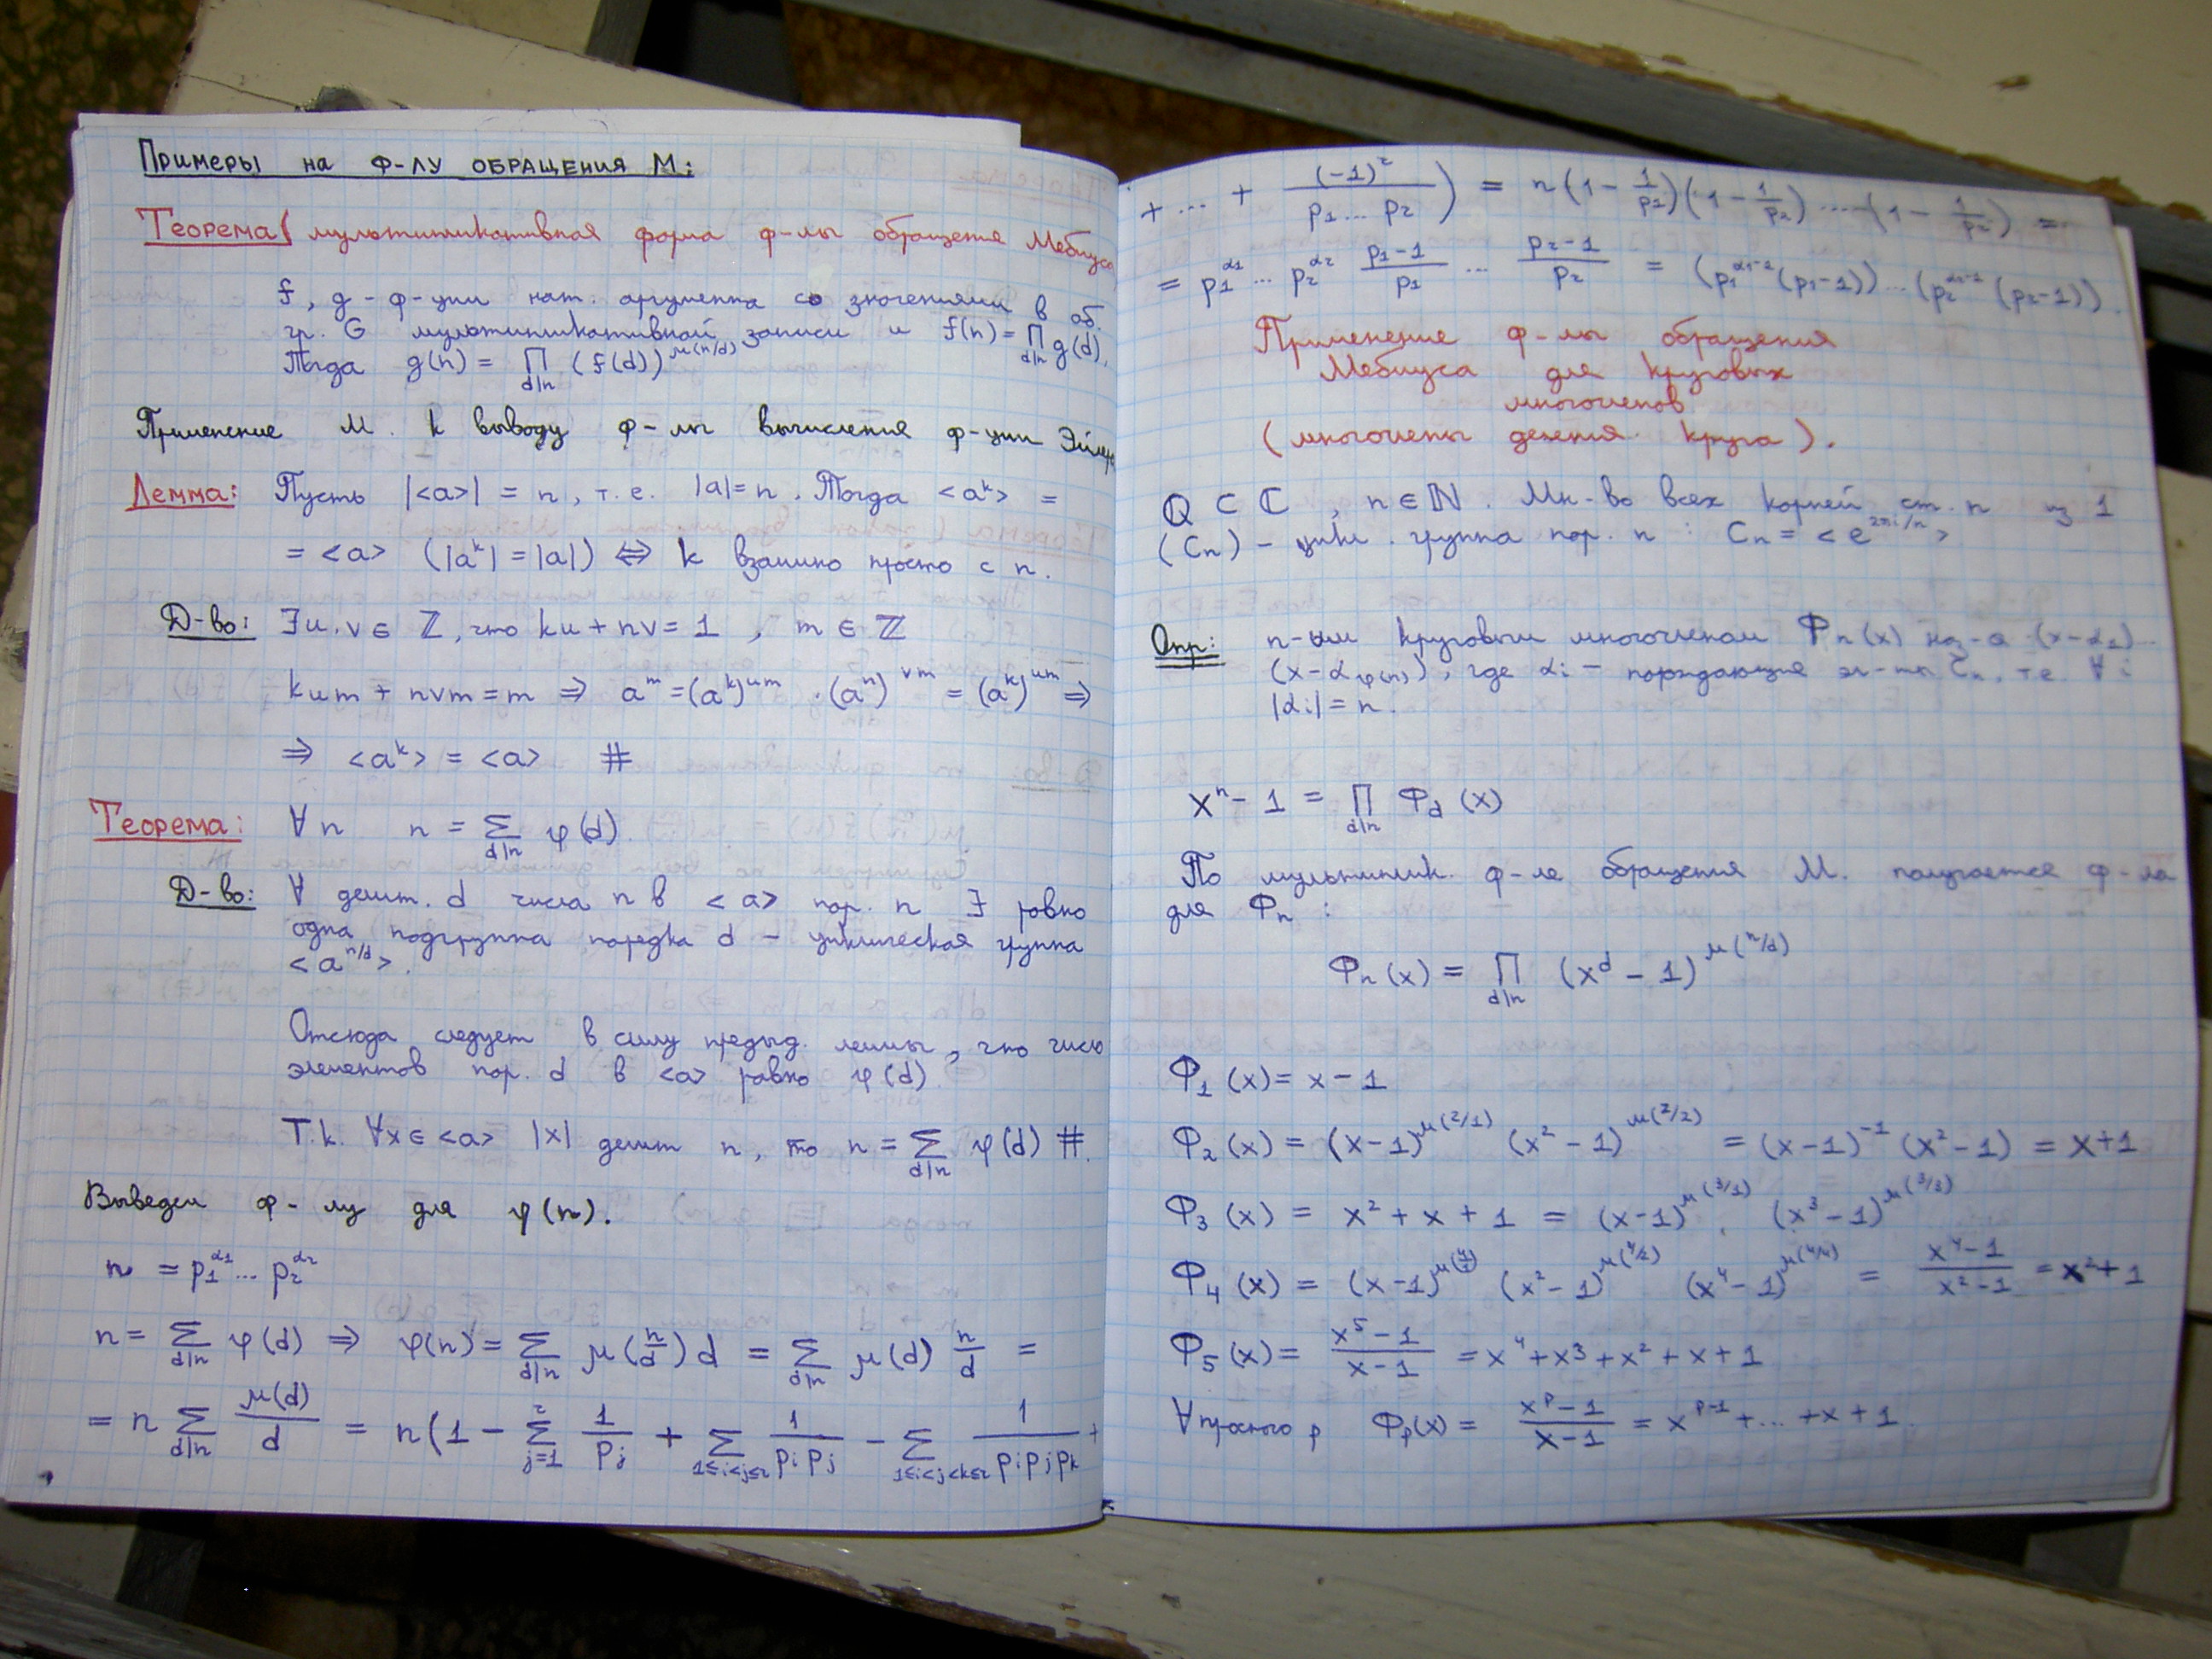 Примеры на ф-лу обращения М:
Теорема (мультипликативная форма ф-лы обращения Мебиуса
f, g - ф-ции нат. аргумента со значениями в аб.
гр. G мультипликативной записи и f(n) = ∏_{d|n} g(d).
Тогда g(n) = ∏_{d|n} (f(d))^{μ(n/d)}
Применение М. к выводу ф-лы вычисления ф-ции Эйлера
Лемма: Пусть |<a>| = n, т.е. |a| = n. Тогда <a^k> =
= <a> (|a^k| = |a|) ⇔ k взаимно просто с n.
Д-во: ∃ u, v ∈ ℤ, что ku + nv = 1, m ∈ ℤ
kum + nvm = m ⇒ a^m = (a^k)^{um} · (a^n)^{vm} = (a^k)^{um} ⇒
⇒ <a^k> = <a> #
Теорема: ∀n n = ∑_{d|n} φ(d).
Д-во: ∀ делит. d числа n в <a> пор. n ∃ ровно
одна подгруппа порядка d - циклическая группа
<a^{n/d}>.
Отсюда следует в силу предыд. леммы, что число
элементов пор. d в <a> равно φ(d)
Т.к. ∀x ∈ <a> |x| делит n, то n = ∑_{d|n} φ(d) #.
Выведем ф-лу для φ(n).
n = p_1^{α_1} ... p_r^{α_r}
n = ∑_{d|n} φ(d) ⇒ φ(n) = ∑_{d|n} μ(n/d) d = ∑_{d|n} μ(d) n/d =
= n ∑_{d|n} μ(d)/d = n(1 - ∑_{j=1}^{r} 1/p_j + ∑_{1≤i<j≤r} 1/(p_i p_j) - ∑_{1≤i<j<k≤r} 1/(p_i p_j p_k) +
+ ... + (-1)^r/(p_1 ... p_r)) = n(1 - 1/p_1)(1 - 1/p_2) ... (1 - 1/p_r) =
= p_1^{α_1} ... p_r^{α_r} (p_1-1)/p_1 ... (p_r-1)/p_r = (p_1^{α_1-1}(p_1-1)) ... (p_r^{α_r-1}(p_r-1)).
Применение ф-лы обращения
Мебиуса для круговых
многочленов
(многочлены деления круга).
Q ⊂ ℂ, n ∈ ℕ. Мн-во всех корней ст. n из 1
(C_n) - цикл. группа пор. n : C_n = <e^{2πi/n}>
Опр: n-ым круговым многочленом Φ_n(x) наз-ся (x-α_1)...
(x-α_{φ(n)}), где α_i - порождающие эл-ты C_n, т.е. ∀i
|α_i| = n.
x^n - 1 = ∏_{d|n} Φ_d(x)
По мультиплик. ф-ле обращения М. получается ф-ла
для Φ_n :
Φ_n(x) = ∏_{d|n} (x^d - 1)^{μ(n/d)}
Φ_1(x) = x - 1
Φ_2(x) = (x-1)^{μ(2/1)} (x^2-1)^{μ(2/2)} = (x-1)^{-1} (x^2-1) = x+1
Φ_3(x) = x^2 + x + 1 = (x-1)^{μ(3/1)} · (x^3-1)^{μ(3/3)}
Φ_4(x) = (x-1)^{μ(4/1)} (x^2-1)^{μ(4/2)} (x^4-1)^{μ(4/4)} = (x^4-1)/(x^2-1) = x^2+1
Φ_5(x) = (x^5-1)/(x-1) = x^4+x^3+x^2+x+1
∀ простого p Φ_p(x) = (x^p-1)/(x-1) = x^{p-1}+...+x+1.